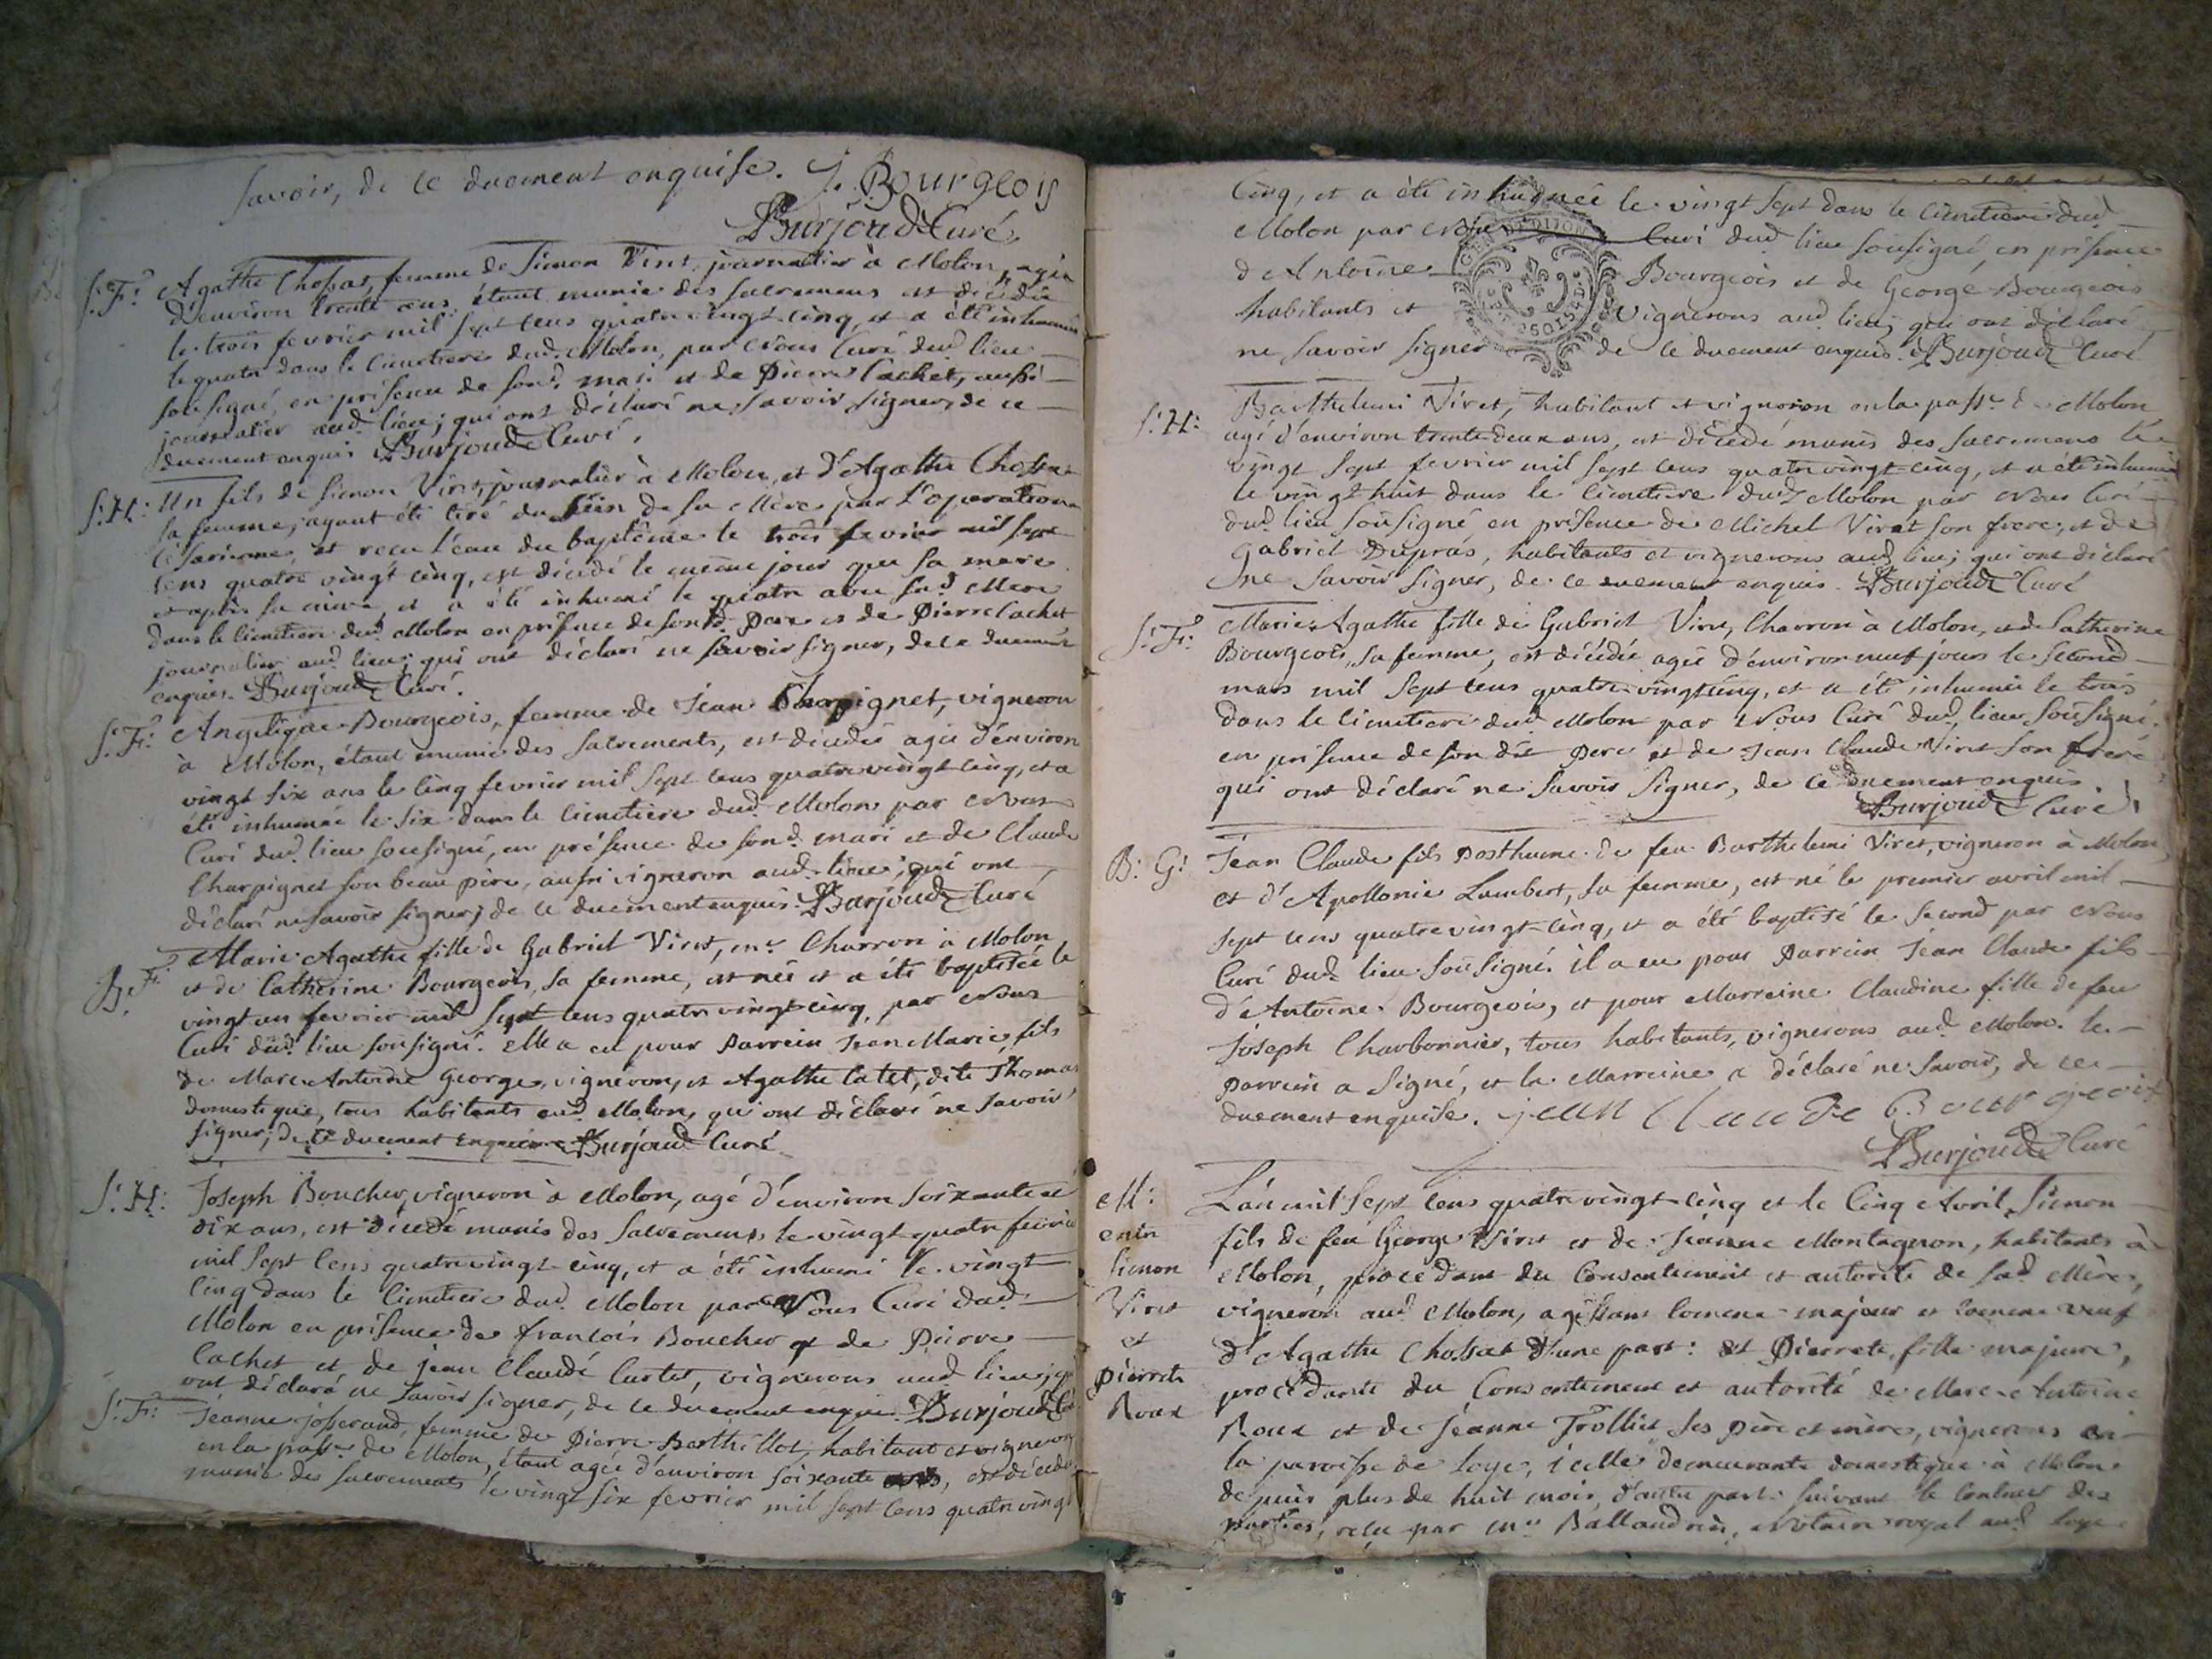 savoir, de ce duement enquise. J. Bourgeois
Burjoud Curé
S: F: Agathe Chossat, femme de Simon Viret, journalier à Molon, agée
d'environ trente ans, étant munie des sacremens est décédée
le trois fevrier mil sept cens quatre vingt-cinq, et a été inhumée
le quatre dans le cimetiere dud. Molon, par Nous Curé dud. lieu
sousigné, en présence de sond. mari et de Pierre Cachet, aussi
journalier aud. lieu; qui ont déclaré ne savoir signer, de ce
duement enquis Burjoud Curé.
S: H: Un fils de Simon Viret, journalier à Molon, et d'Agathe Chossat
sa femme, ayant été tiré du sein de sa Mere par l'operation
césarienne, et reçu l'eau du baptême le trois fevrier mil sept
cens quatre vingt cinq, est décédé le même jour que sa mere
et après sa mere, et a été inhumé le quatre avec sad. Mere
dans le cimetiere dud. Molon en présence de sond. Pere et de Pierre Cachet
journalier aud. lieu; qui ont déclaré ne savoir signer, de ce duement
enquis. Burjoud Curé.
S: F: Angelique Bourgeois, femme de Jean Charpignet, vigneron
à Molon, étant munie des sacrements, est décédée agée d'environ
vingt six ans le cinq fevrier mil sept cens quatre vingt cinq, et a
été inhumée le six dans le cimetiere dud. Molon par Nous
Curé dud. lieu sousigné, en présence de sond. mari et de Claude
Charpignet son beau père, aussi vigneron aud. lieu; qui ont
déclaré ne savoir signer, de ce duement enquis. Burjoud Curé
B. F: Marie Agathe fille de Gabriel Viret, me. Charron à Molon
et de Catherine Bourgeois, sa femme, est née et a été baptisée le
vingt un fevrier mil sept cens quatre vingt cinq, par Nous
Curé dud. lieu sousigné. elle a eu pour Parrein Jean Marie, fils
de Marc Antoine George, vigneron, et Agathe Catet, dite Thomas
domestique, tous habitants aud. Molon, qui ont déclaré ne savoir
signer; de ce duement enquis Burjoud Curé
S: H: Joseph Boucher, vigneron à Molon, agé d'environ soixante et
dix ans, est décedé munis des sacremens le vingt quatre fevrier
mil sept cens quatre vingt-cinq, et a été inhumé le vingt
cinq dans le cimetiere dud. Molon par Nous Curé dud.
Molon en présence de francois Boucher et de Pierre
Cachet et de jean Claude Curtet, vignerons aud. lieu;
ont déclaré ne savoir signer, de ce duement enquis. Burjoud
S: F: Jeanne josserand, femme de Pierre Berthillot, habitant et vigneron
en la passe. de Molon, étant agée d'environ soixante ans, est décedée
munie des sacrements le vingt six fevrier mil sept cens quatre vingt
cinq, et a été inhumée le vingt sept dans le cimetiere dud.
Molon par Nous Curé dud. lieu sousigné, en présence
d'Antoine Bourgeois et de George Bourgeois
habitants et vignerons aud. lieu; qui ont déclaré
ne savoir signer de ce duement enquis. Burjoud Curé
S: H: Barthelemi Viret, habitant et vigneron en la passe. de Molon
agé d'environ trente deux ans, est décedé munis des sacremens le
vingt sept fevrier mil sept cens quatre vingt-cinq, et a été inhumé
le vingt huit dans le cimetiere dud. Molon par Nous Curé
dud. lieu sousigné en présence de Michel Viret son frere, et de
Gabriel Dupras, habitants et vignerons aud. lieu; qui ont déclaré
ne savoir signer, de ce duement enquis. Burjoud Curé
S: F: Marie Agathe fille de Gabriel Viret, Charron à Molon, et de Catherine
Bourgeois, sa femme, est décédée agée d'environ neuf jours le second
mars mil sept cens quatre vingt cinq, et a été inhumée le trois
dans le cimetiere dud. Molon par Nous Curé dud. lieu sousigné.
en présence de son dit Pere et de Jean Claude Viret son frere
qui ont déclaré ne savoir signer, de ce duement enquis.
Burjoud Curé
B: G: Jean Claude fils Posthume de feu Barthelemi Viret, vigneron à Molon
et d'Apollonie Lambert, sa femme, est né le premier avril mil
sept cens quatre vingt-cinq, et a été baptisé le second par Nous
Curé dud. lieu sousigné. il a eu pour Parrein Jean Claude fils
d'Antoine Bourgeois, et pour Marreine Claudine fille de feu
Joseph Charbonnier, tous habitants, vignerons aud. Molon. le
Parrein a signé, et la Marreine a déclaré ne savoir, de ce
duement enquise. jean Claude Bourgeois
Burjoud Curé
M: L'an mil sept cens quatre vingt-cinq et le cinq Avril, Simon
entre fils de feu George Viret et de Jeanne Montagnon, habitants à
Simon Molon, procédant du consentement et autorité de sad. Mère,
Viret vigneron aud. Molon, agissant comme majeur et comme veuf
et d'Agathe Chossat d'une part: et Pierrete, fille majeure,
Pierrete procédante du Consentement et autorité de Marc-Antoine
Roux Roux et de Jeanne Trolliet ses père et mère, vignerons en
la paroisse de Loye, icelle demeurante domestique à Molon
depuis plus de huit mois, d'autre part: suivant le contract des
parties, reçu par me. Ballandrin, Notaire royal aud. Loye